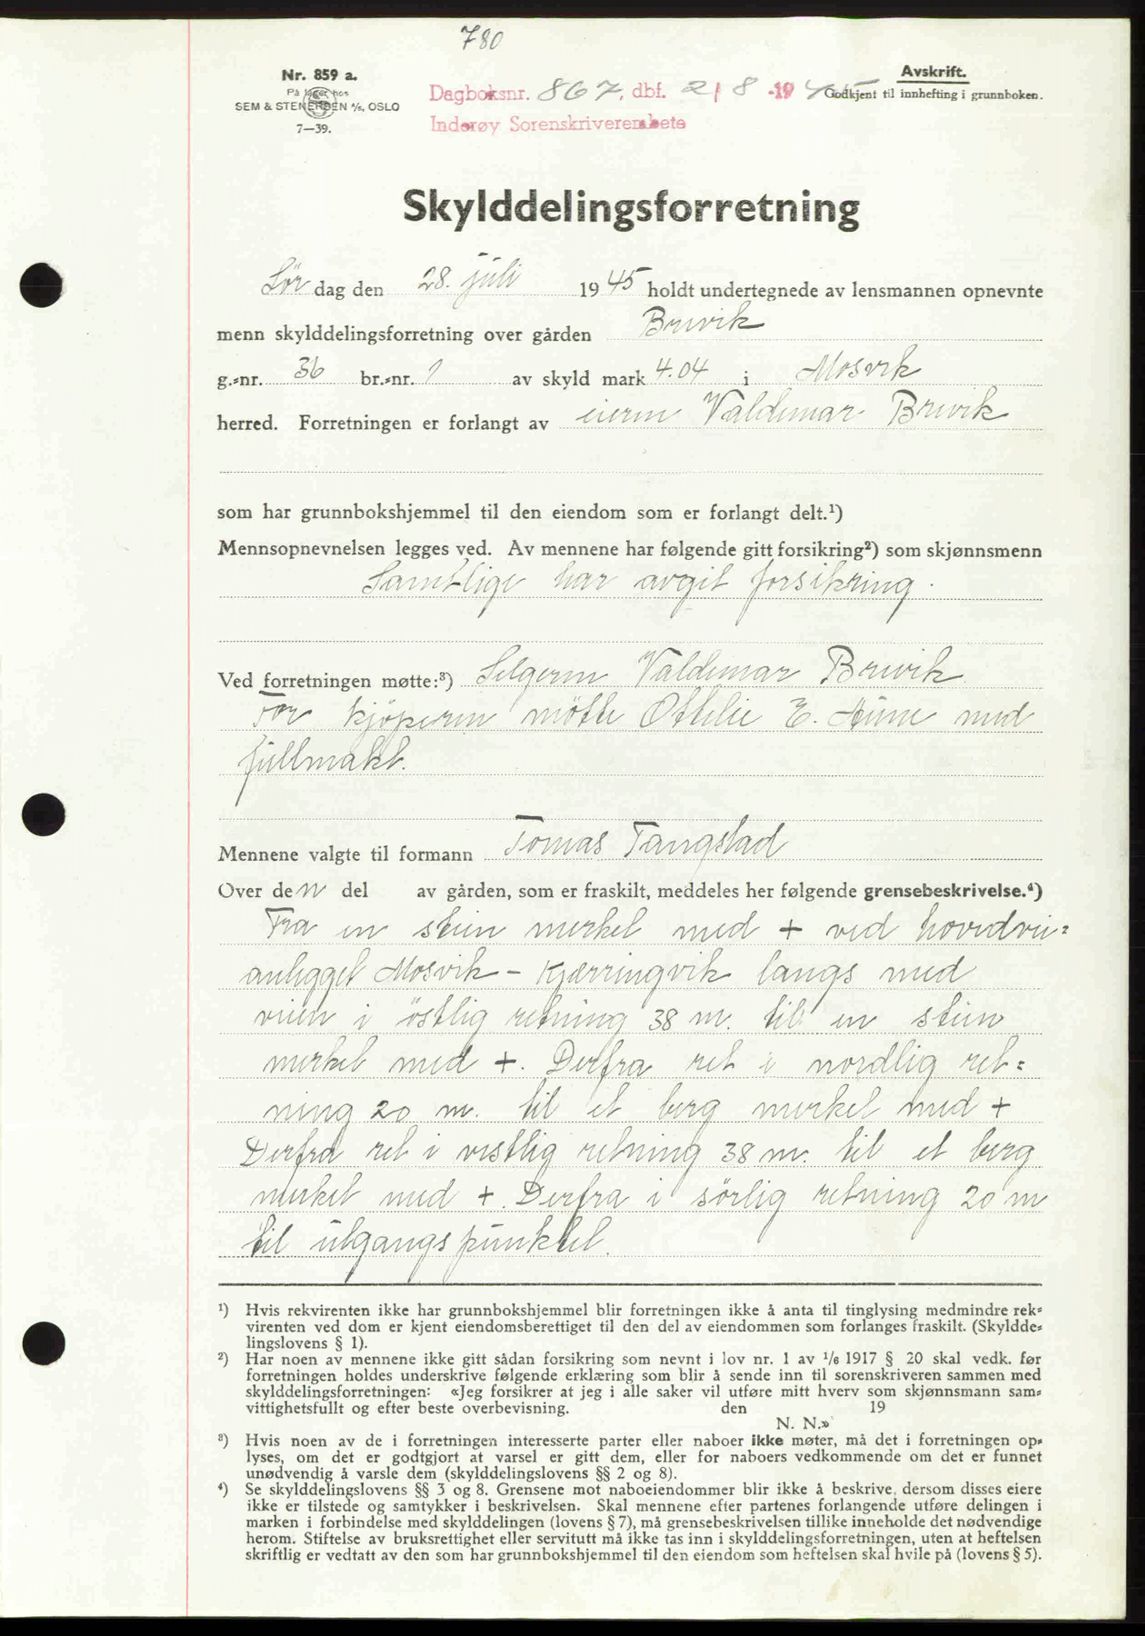 780
Nr. 859 a.
På lager hos
SEM & STENERSEN A/S, OSLO
7—39.
Dagboksnr. 867, dbf. 2/8 -1945
Inderøy Sorenskriverembete
Avskrift.
Godkjent til innhefting i grunnboken.
Skylddelingsforretning
Lør dag den 28. juli 1945 holdt undertegnede av lensmannen opnevnte
menn skylddelingsforretning over gården Brivik
g.-nr. 36 br.-nr. 1 av skyld mark 4.04 i Mosvik
herred. Forretningen er forlangt av eieren Valdemar Brivik
som har grunnbokshjemmel til den eiendom som er forlangt delt.¹)
Mennsopnevnelsen legges ved. Av mennene har følgende gitt forsikring²) som skjønnsmenn
Samtlige har avgit forsikring.
Ved forretningen møtte:³) Selgeren Valdemar Brivik
For kjöperen mötte Ottilie E. Aune med
fullmakt.
Mennene valgte til formann Tomas Tangstad
Over den del av gården, som er fraskilt, meddeles her følgende grensebeskrivelse.⁴)
Fra en stein merket med + ved hovedvei=
anlegget Mosvik - Kjerringvik langs med
veien i östlig retning 38 m. til en stein
merket med +. Derfra ret i nordlig ret=
ning 20 m. til et berg merket med +
Derfra ret i vestlig retning 38 m. til et berg
merket med +. Derfra i sörlig retning 20 m
til utgangspunktet.
¹) Hvis rekvirenten ikke har grunnbokshjemmel blir forretningen ikke å anta til tinglysing medmindre rek-
virenten ved dom er kjent eiendomsberettiget til den del av eiendommen som forlanges fraskilt. (Skyldde-
lingslovens § 1).
²) Har noen av mennene ikke gitt sådan forsikring som nevnt i lov nr. 1 av 1/6 1917 § 20 skal vedk. før
forretningen holdes underskrive følgende erklæring som blir å sende inn til sorenskriveren sammen med
skylddelingsforretningen: «Jeg forsikrer at jeg i alle saker vil utføre mitt hverv som skjønnsmann sam-
vittighetsfullt og efter beste overbevisning. den 19
N. N.»
³) Hvis noen av de i forretningen interesserte parter eller naboer ikke møter, må det i forretningen op-
lyses, om det er godtgjort at varsel er gitt dem, eller for naboers vedkommende om det er funnet
unødvendig å varsle dem (skylddelingslovens §§ 2 og 8).
⁴) Se skylddelingslovens §§ 3 og 8. Grensene mot naboeiendommer blir ikke å beskrive, dersom disses eiere
ikke er tilstede og samtykker i beskrivelsen. Skal mennene efter partenes forlangende utføre delingen i
marken i forbindelse med skylddelingen (lovens § 7), må grensebeskrivelsen tillike inneholde det nødvendige
herom. Stiftelse av bruksrettighet eller servitutt må ikke tas inn i skylddelingsforretningen, uten at heftelsen
skriftlig er vedtatt av den som har grunnbokshjemmel til den eiendom som heftelsen skal hvile på (lovens § 5).